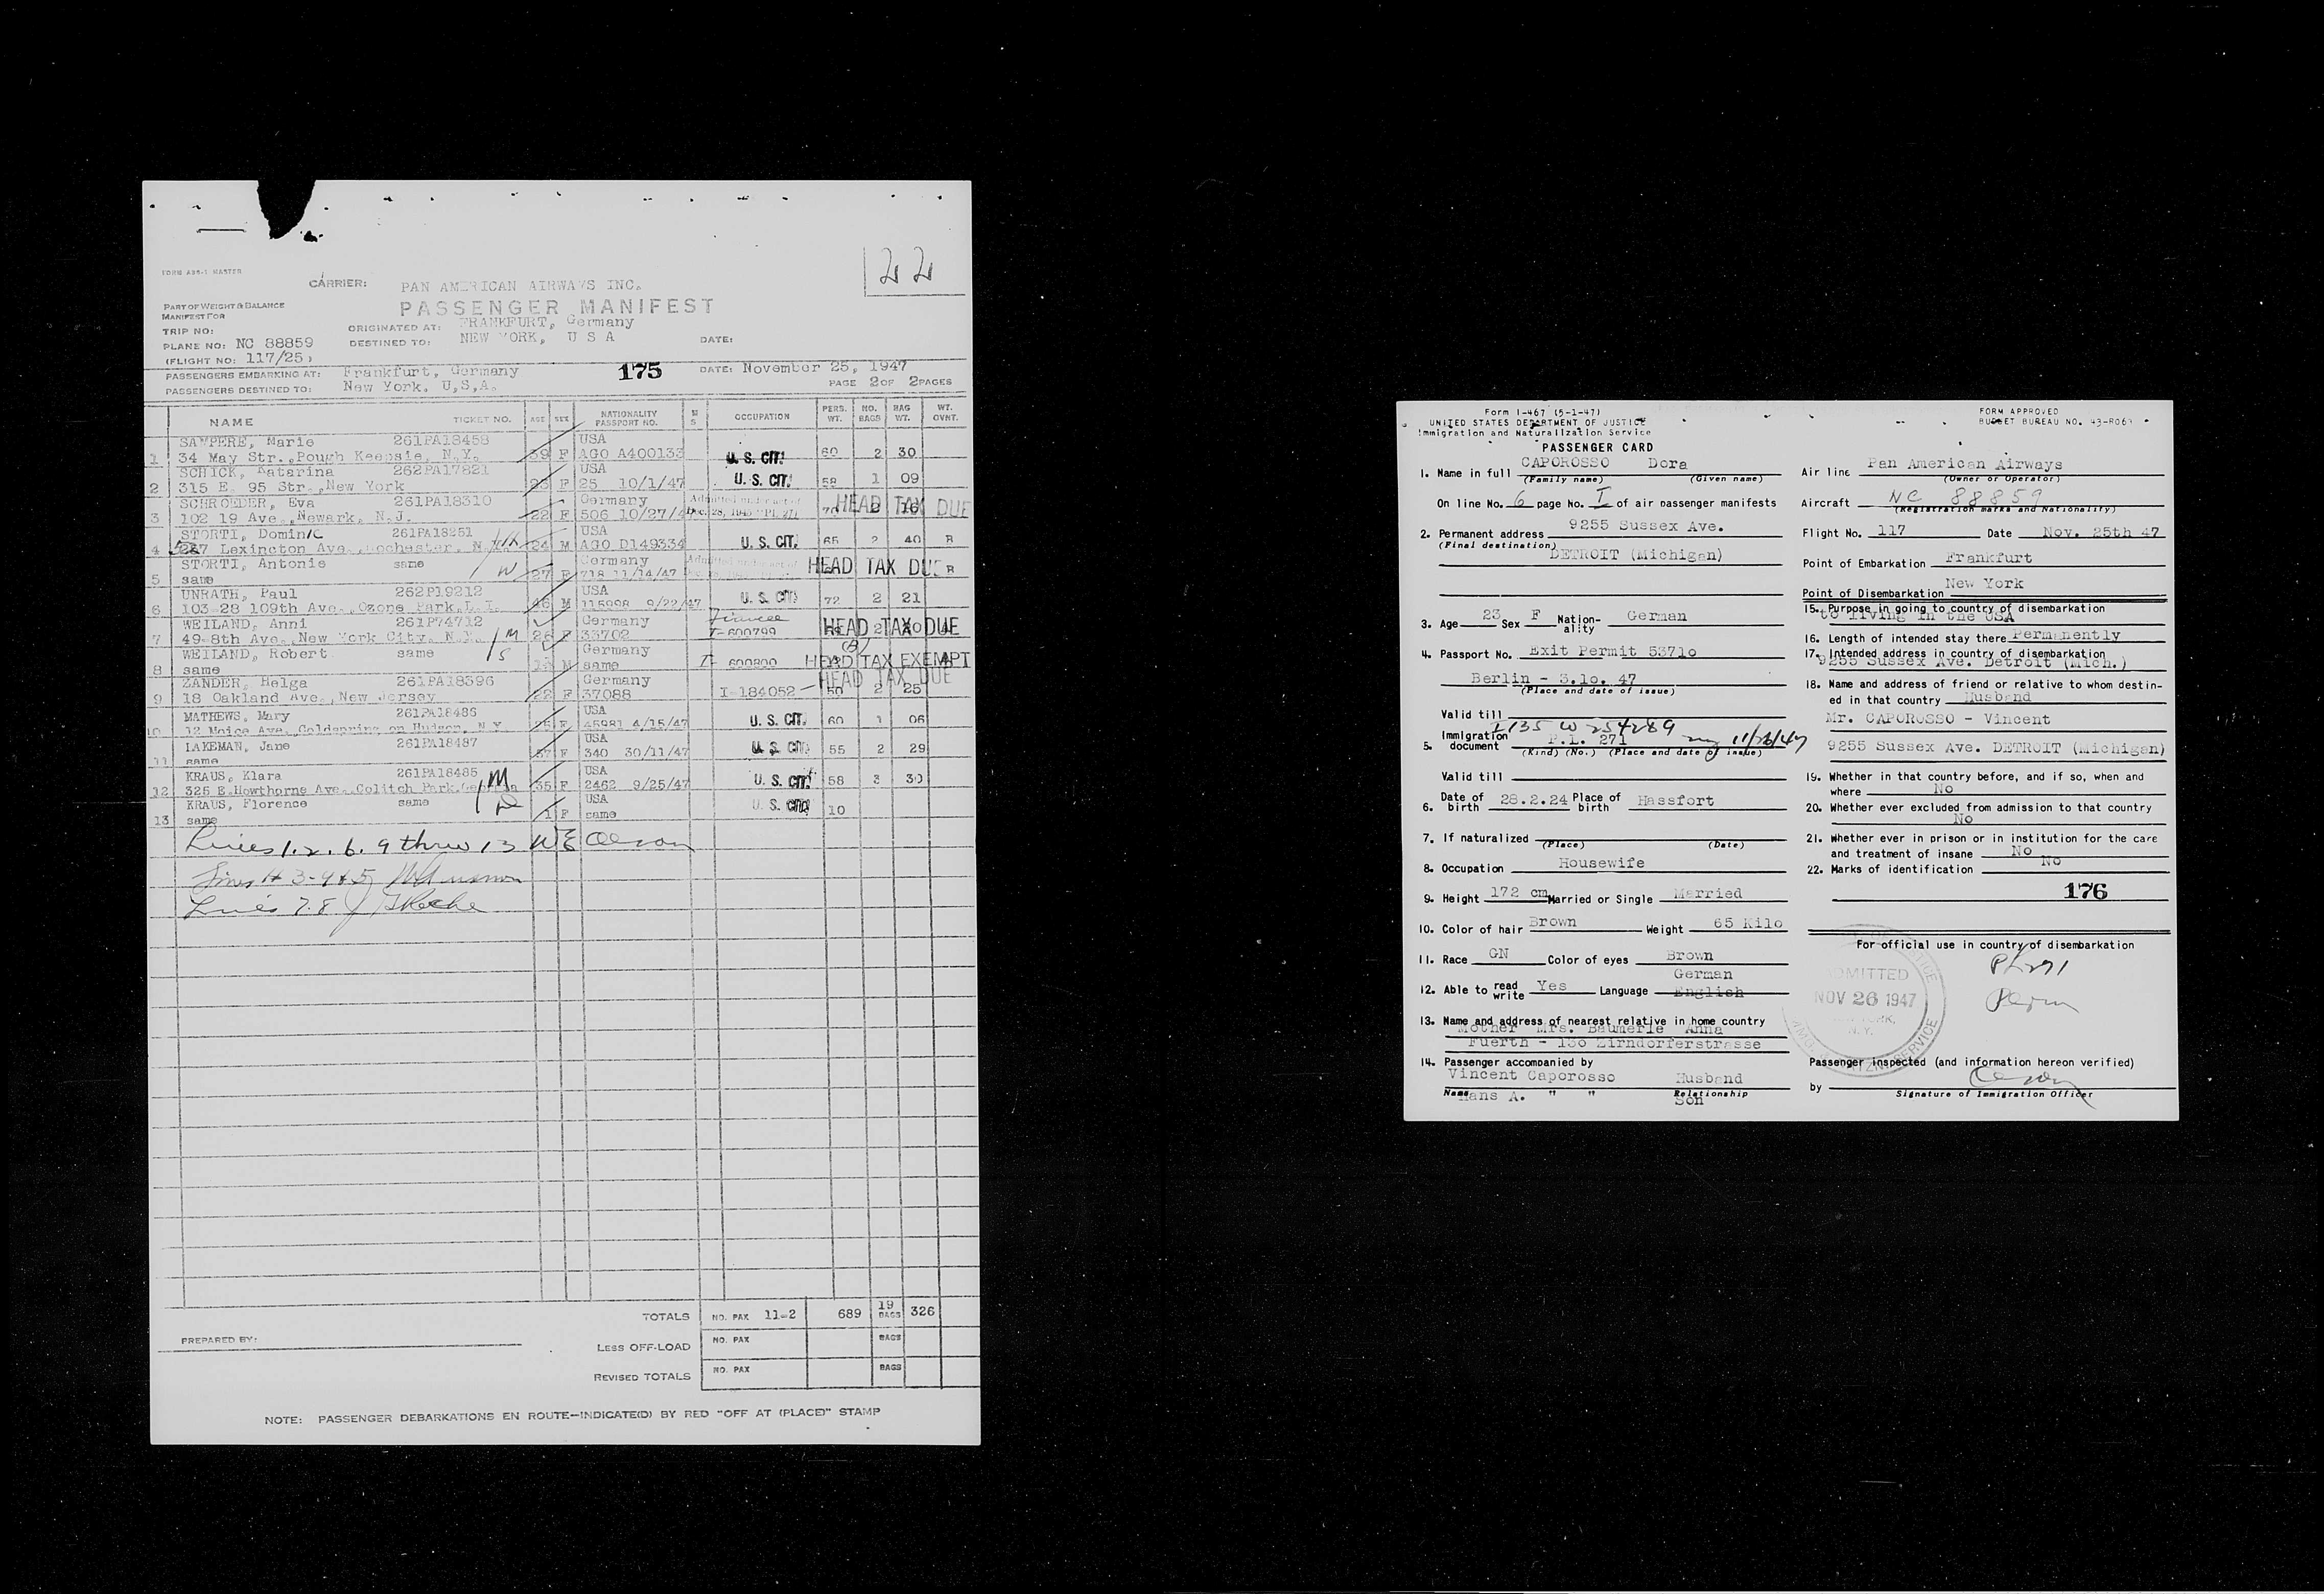 22
FORM ABS-1 MASTER
CARRIER: PAN AMERICAN AIRWAYS INC.
PART OF WEIGHT & BALANCE
MANIFEST FOR
PASSENGER MANIFEST
TRIP NO:
ORIGINATED AT: FRANKFURT, Germany
PLANE NO: NC 88859
DESTINED TO: NEW YORK, U S A
DATE:
(FLIGHT NO: 117/25)
PASSENGERS EMBARKING AT: Frankfurt, Germany
175
DATE: November 25, 1947
PASSENGERS DESTINED TO: New York, U,S,A.
PAGE 2 OF 2 PAGES
NAME TICKET NO. AGE SEX NATIONALITY PASSPORT NO. M S OCCUPATION PERS. WT. NO. BAGS BAG WT. WT. OVNT.
SAMPERE, Marie 261PA18458 USA
1 34 May Str.,Pough Keepsie, N.Y. 39 F AGO A400133 U. S. CIT. 60 2 30
SCHICK, Katarina 262PA17821 USA
2 315 E. 95 Str.,New York 23 F 25 10/1/47 U. S. CIT. 58 1 09
SCHROEDER, Eva 261PA18310 Germany Admitted under act of HEAD TAX DUE
3 102 19 Ave.,Newark, N.J. 22 F 506 10/27/4 Dec. 28, 1945 "PL 271 70 2 16
STORTI, Dominic 261PA18251 USA
4 Lexington Ave.,Rochester, N.Y. H 24 M AGO D149334 U. S. CIT. 65 2 40 B
STORTI, Antonie same Germany Admitted under act of HEAD TAX DUE
5 same W 27 F 718 11/14/47 B
UNRATH, Paul 262P19212 USA
6 103-28 109th Ave.,Ozone Park,L.I. 46 M 115998 9/22/47 U. S. CIT. 72 2 21
WEILAND, Anni 261P74712 Germany Fiancee
7 49-8th Ave.,New York City, N.Y. M 26 F 33702 T-600799 HEAD TAX DUE
WEILAND, Robert same S Germany
8 same M same T- 600800 HEAD TAX EXEMPT
ZANDER, Helga 261PA18396 Germany HEAD TAX DUE
9 18 Oakland Ave.,New Jersey 22 F 37088 I-184052 50 2 25
MATHEWS, Mary 261PA18486 USA
10 12 Moice Ave. Coldspring on Hudson, N.Y. 25 F 45981 4/15/47 U. S. CIT. 60 1 06
LAKEMAN, Jane 261PA18487 USA
11 same 57 F 340 30/11/47 U. S. CIT. 55 2 29
KRAUS, Klara 261PA18485 M USA
12 325 E.Howthorne Ave.Colitch Park. 35 F 2462 9/25/47 U. S. CIT. 58 3 30
KRAUS, Florence same D USA
13 same 1 F same U. S. CIT. 10
Lines 1. 2. 6. 9 thru 13 WE Olson
Lines # 3-4 & 5
Lines 7. 8
TOTALS NO. PAX 11-2 689 19 BAGS 326
PREPARED BY:
LESS OFF-LOAD NO. PAX BAGS
REVISED TOTALS NO. PAX BAGS
NOTE: PASSENGER DEBARKATIONS EN ROUTE—INDICATE(D) BY RED "OFF AT (PLACE)" STAMP
Form I-467 (5-1-47)
UNITED STATES DEPARTMENT OF JUSTICE
Immigration and Naturalization Service
FORM APPROVED
BUDGET BUREAU NO. 43-R063
PASSENGER CARD
1. Name in full CAPOROSSO Dora
(Family name) (Given name)
On line No. 6 page No. I of air passenger manifests
2. Permanent address 9255 Sussex Ave.
(Final destination) DETROIT (Michigan)
3. Age 23 Sex F Nationality German
4. Passport No. Exit Permit 53710
Berlin - 3.10. 47
(Place and date of issue)
Valid till
I/35 W 254289
5. Immigration document P.L. 271 11/26/47
(Kind) (No.) (Place and date of issue)
Valid till
6. Date of birth 28.2.24 Place of birth Hassfort
7. If naturalized
(Place) (Date)
8. Occupation Housewife
9. Height 172 cm Married or Single Married
10. Color of hair Brown Weight 65 Kilo
11. Race GN Color of eyes Brown
German
12. Able to read write Yes Language English
13. Name and address of nearest relative in home country
Mother Mrs. Baumerle Anna
Fuerth - 130 Zirndorferstrasse
14. Passenger accompanied by
Vincent Caporosso Husband
Name Relationship
Hans A. " " Son
Air line Pan American Airways
(Owner or Operator)
Aircraft NC 88859
(Registration marks and Nationality)
Flight No. 117 Date Nov. 25th 47
Point of Embarkation Frankfurt
New York
Point of Disembarkation
15. Purpose in going to country of disembarkation
to living in the USA
16. Length of intended stay there Permanently
17. Intended address in country of disembarkation
9255 Sussex Ave. Detroit (Mich.)
18. Name and address of friend or relative to whom destined in that country Husband
Mr. CAPOROSSO - Vincent
9255 Sussex Ave. DETROIT (Michigan)
19. Whether in that country before, and if so, when and
where No
20. Whether ever excluded from admission to that country
No
21. Whether ever in prison or in institution for the care
and treatment of insane No
22. Marks of identification No
176
For official use in country of disembarkation
PL 271
Perm
ADMITTED
NOV 26 1947
N.Y.
Passenger inspected (and information hereon verified)
by Olson
Signature of Immigration Officer